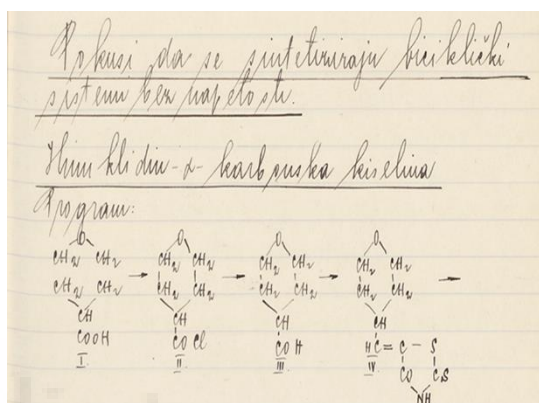 Pokusi da se sintetiziraju biciklički
sistemi bez napetosti.
Hinuklidin-α-karbonska kiselina
Program:
O O O O
CH₂ CH₂ CH₂ CH₂ CH₂ CH₂ CH₂ CH₂
CH₂ CH₂ CH₂ CH₂ CH₂ CH₂ CH₂ CH₂
CH CH CH CH
COOH COCl COH HC = C - S
I II III IV CO CS
NH